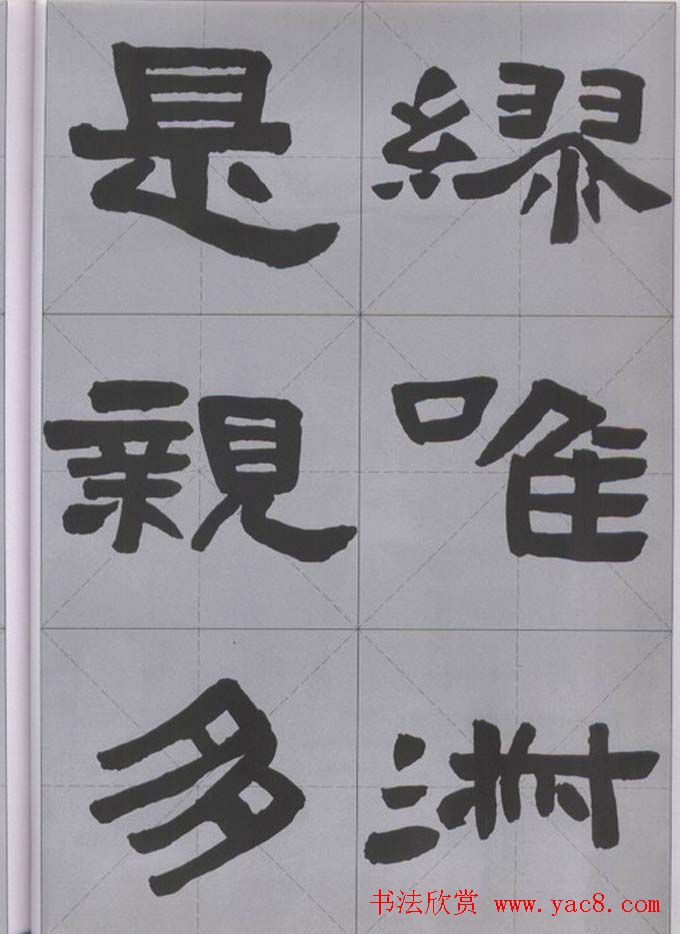 繆唯淑
是親多
书法欣赏 www.yac8.com